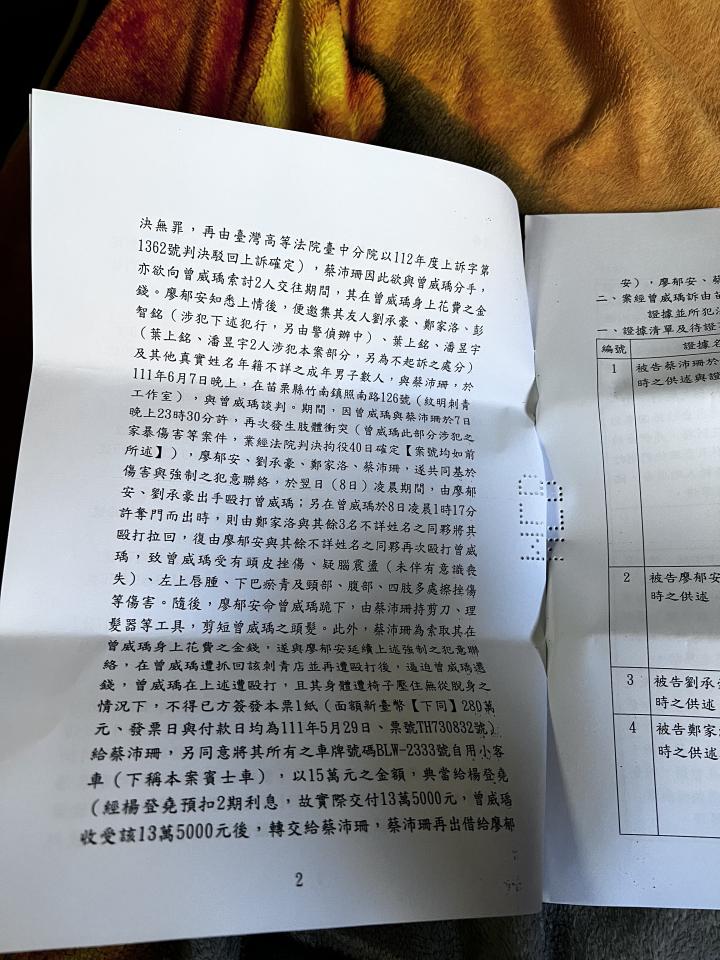 決無罪，再由臺灣高等法院臺中分院以112年度上訴字第
1362號判決駁回上訴確定），蔡沛珊因此欲與曾威瑀分手，
亦欲向曾威瑀索討2人交往期間，其在曾威瑀身上花費之金
錢。廖郁安知悉上情後，便邀集其友人劉承豪、鄭家洛、彭
智銘（涉犯下述犯行，另由警偵辦中）、葉上銘、潘昱宇
（葉上銘、潘昱宇2人涉犯本案部分，另為不起訴之處分）
及其他真實姓名年籍不詳之成年男子數人，與蔡沛珊，於
111年6月7日晚上，在苗栗縣竹南鎮照南路126號（紋明刺青
工作室），與曾威瑀談判。期間，因曾威瑀與蔡沛珊於7日
晚上23時30分許，再次發生肢體衝突（曾威瑀此部分涉犯之
家暴傷害等案件，業經法院判決拘役40日確定【案號均如前
所述】），廖郁安、劉承豪、鄭家洛、蔡沛珊，遂共同基於
傷害與強制之犯意聯絡，於翌日（8日）凌晨期間，由廖郁
安、劉承豪出手毆打曾威瑀；另在曾威瑀於8日凌晨1時17分
許奪門而出時，則由鄭家洛與其餘3名不詳姓名之同夥將其
毆打拉回，復由廖郁安與其餘不詳姓名之同夥再次毆打曾威
瑀，致曾威瑀受有頭皮挫傷、疑腦震盪（未伴有意識喪
失）、左上唇腫、下巴瘀青及頸部、腹部、四肢多處擦挫傷
等傷害。隨後，廖郁安命曾威瑀跪下，由蔡沛珊持剪刀、理
髮器等工具，剪短曾威瑀之頭髮。此外，蔡沛珊為索取其在
曾威瑀身上花費之金錢，遂與廖郁安延續上述強制之犯意聯
絡，在曾威瑀遭抓回該刺青店並再遭毆打後，逼迫曾威瑀還
錢，曾威瑀在上述遭毆打，且其身體遭椅子壓住無從脫身之
情況下，不得已方簽發本票1紙（面額新臺幣【下同】280萬
元、發票日與付款日均為111年5月29日、票號TH730832號）
給蔡沛珊，另同意將其所有之車牌號碼BLW-2333號自用小客
車（下稱本案賓士車），以15萬元之金額，典當給楊登堯
（經楊登堯預扣2期利息，故實際交付13萬5000元，曾威瑀
收受該13萬5000元後，轉交給蔡沛珊，蔡沛珊再出借給廖郁
2
安），廖郁安、蔡
二、案經曾威瑀訴由苗
證據並所犯法
一、證據清單及待證
編號
證據名
1
被告蔡沛珊於
時之供述與證
2
被告廖郁安
時之供述
3
被告劉承豪
時之供述
4
被告鄭家洛
時之供述